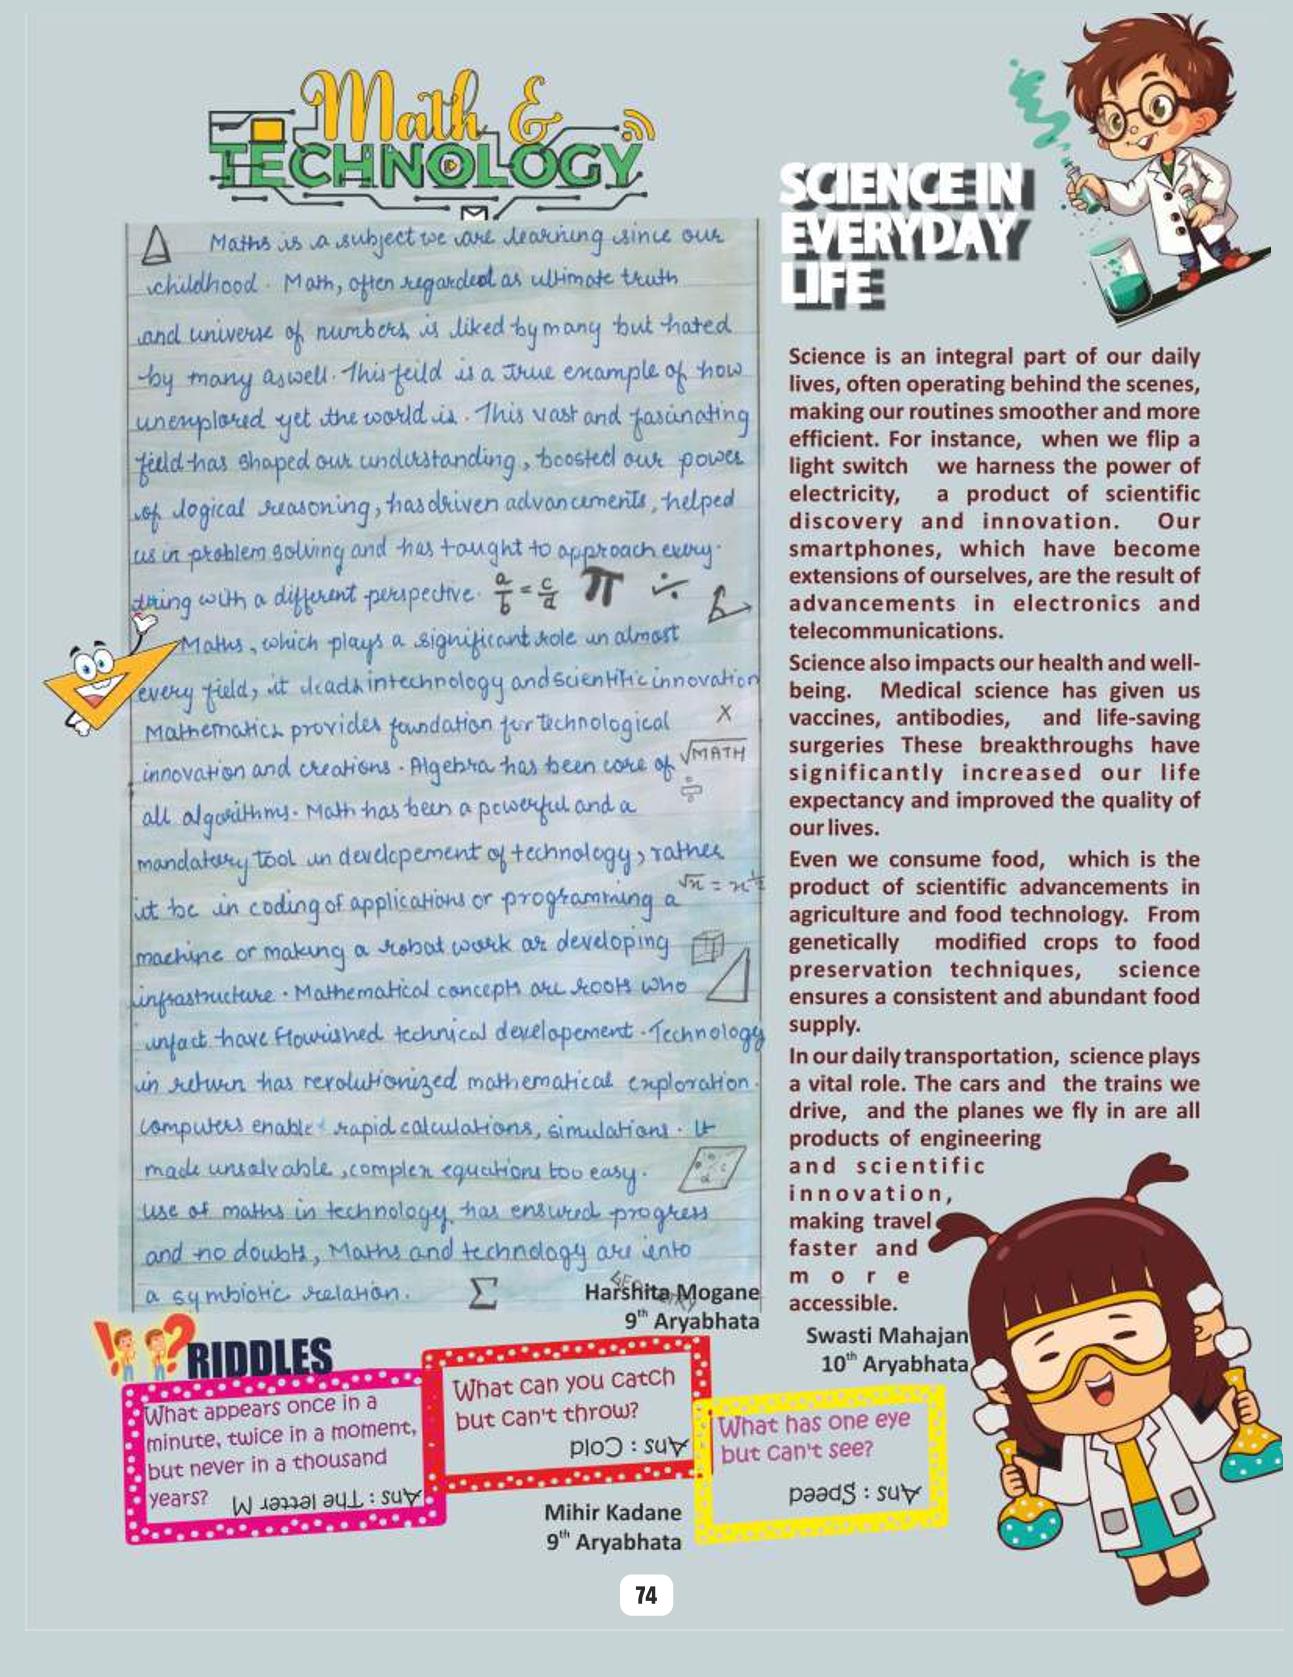 Math &
TECHNOLOGY
Maths is a subject we are learning since our
childhood. Math, often regarded as ultimate truth
and universe of numbers, is liked by many but hated
by many aswell. This feild is a true example of how
unexplored yet the world is. This vast and fascinating
field has shaped our understanding, boosted our power
of logical reasoning, has driven advancements, helped
us in problem solving and has taught to approach every-
thing with a different perspective. a/b = c/d π ÷
Maths, which plays a significant role in almost
every field, it leads in technology and scientific innovation
Mathematics provides foundation for technological
x
innovation and creations. Algebra has been core of
√MATH
÷
all algorithms. Math has been a powerful and a
mandatory tool in developement of technology, rather
√x = x^1/2
it be in coding of applications or programming a
machine or making a robot work or developing
infrastructure. Mathematical concepts are roots who
infact have flourished technical developement. Technology
in return has revolutionized mathematical exploration.
computers enable rapid calculations, simulations. It
made unsolvable, complex equations too easy.
use of maths in technology has ensured progress
and no doubts, Maths and technology are into
a symbiotic relation. Σ
Harshita Mogane
9th Aryabhata
SCIENCE IN
EVERYDAY
LIFE
Science is an integral part of our daily
lives, often operating behind the scenes,
making our routines smoother and more
efficient. For instance, when we flip a
light switch we harness the power of
electricity, a product of scientific
discovery and innovation. Our
smartphones, which have become
extensions of ourselves, are the result of
advancements in electronics and
telecommunications.
Science also impacts our health and well-
being. Medical science has given us
vaccines, antibodies, and life-saving
surgeries These breakthroughs have
significantly increased our life
expectancy and improved the quality of
our lives.
Even we consume food, which is the
product of scientific advancements in
agriculture and food technology. From
genetically modified crops to food
preservation techniques, science
ensures a consistent and abundant food
supply.
In our daily transportation, science plays
a vital role. The cars and the trains we
drive, and the planes we fly in are all
products of engineering
and scientific
innovation,
making travel
faster and
more
accessible.
Swasti Mahajan
10th Aryabhata
!? RIDDLES
What appears once in a
minute, twice in a moment,
but never in a thousand
years?
Ans : The letter M
What can you catch
but can't throw?
Ans : Cold
What has one eye
but can't see?
Ans : Speed
Mihir Kadane
9th Aryabhata
74